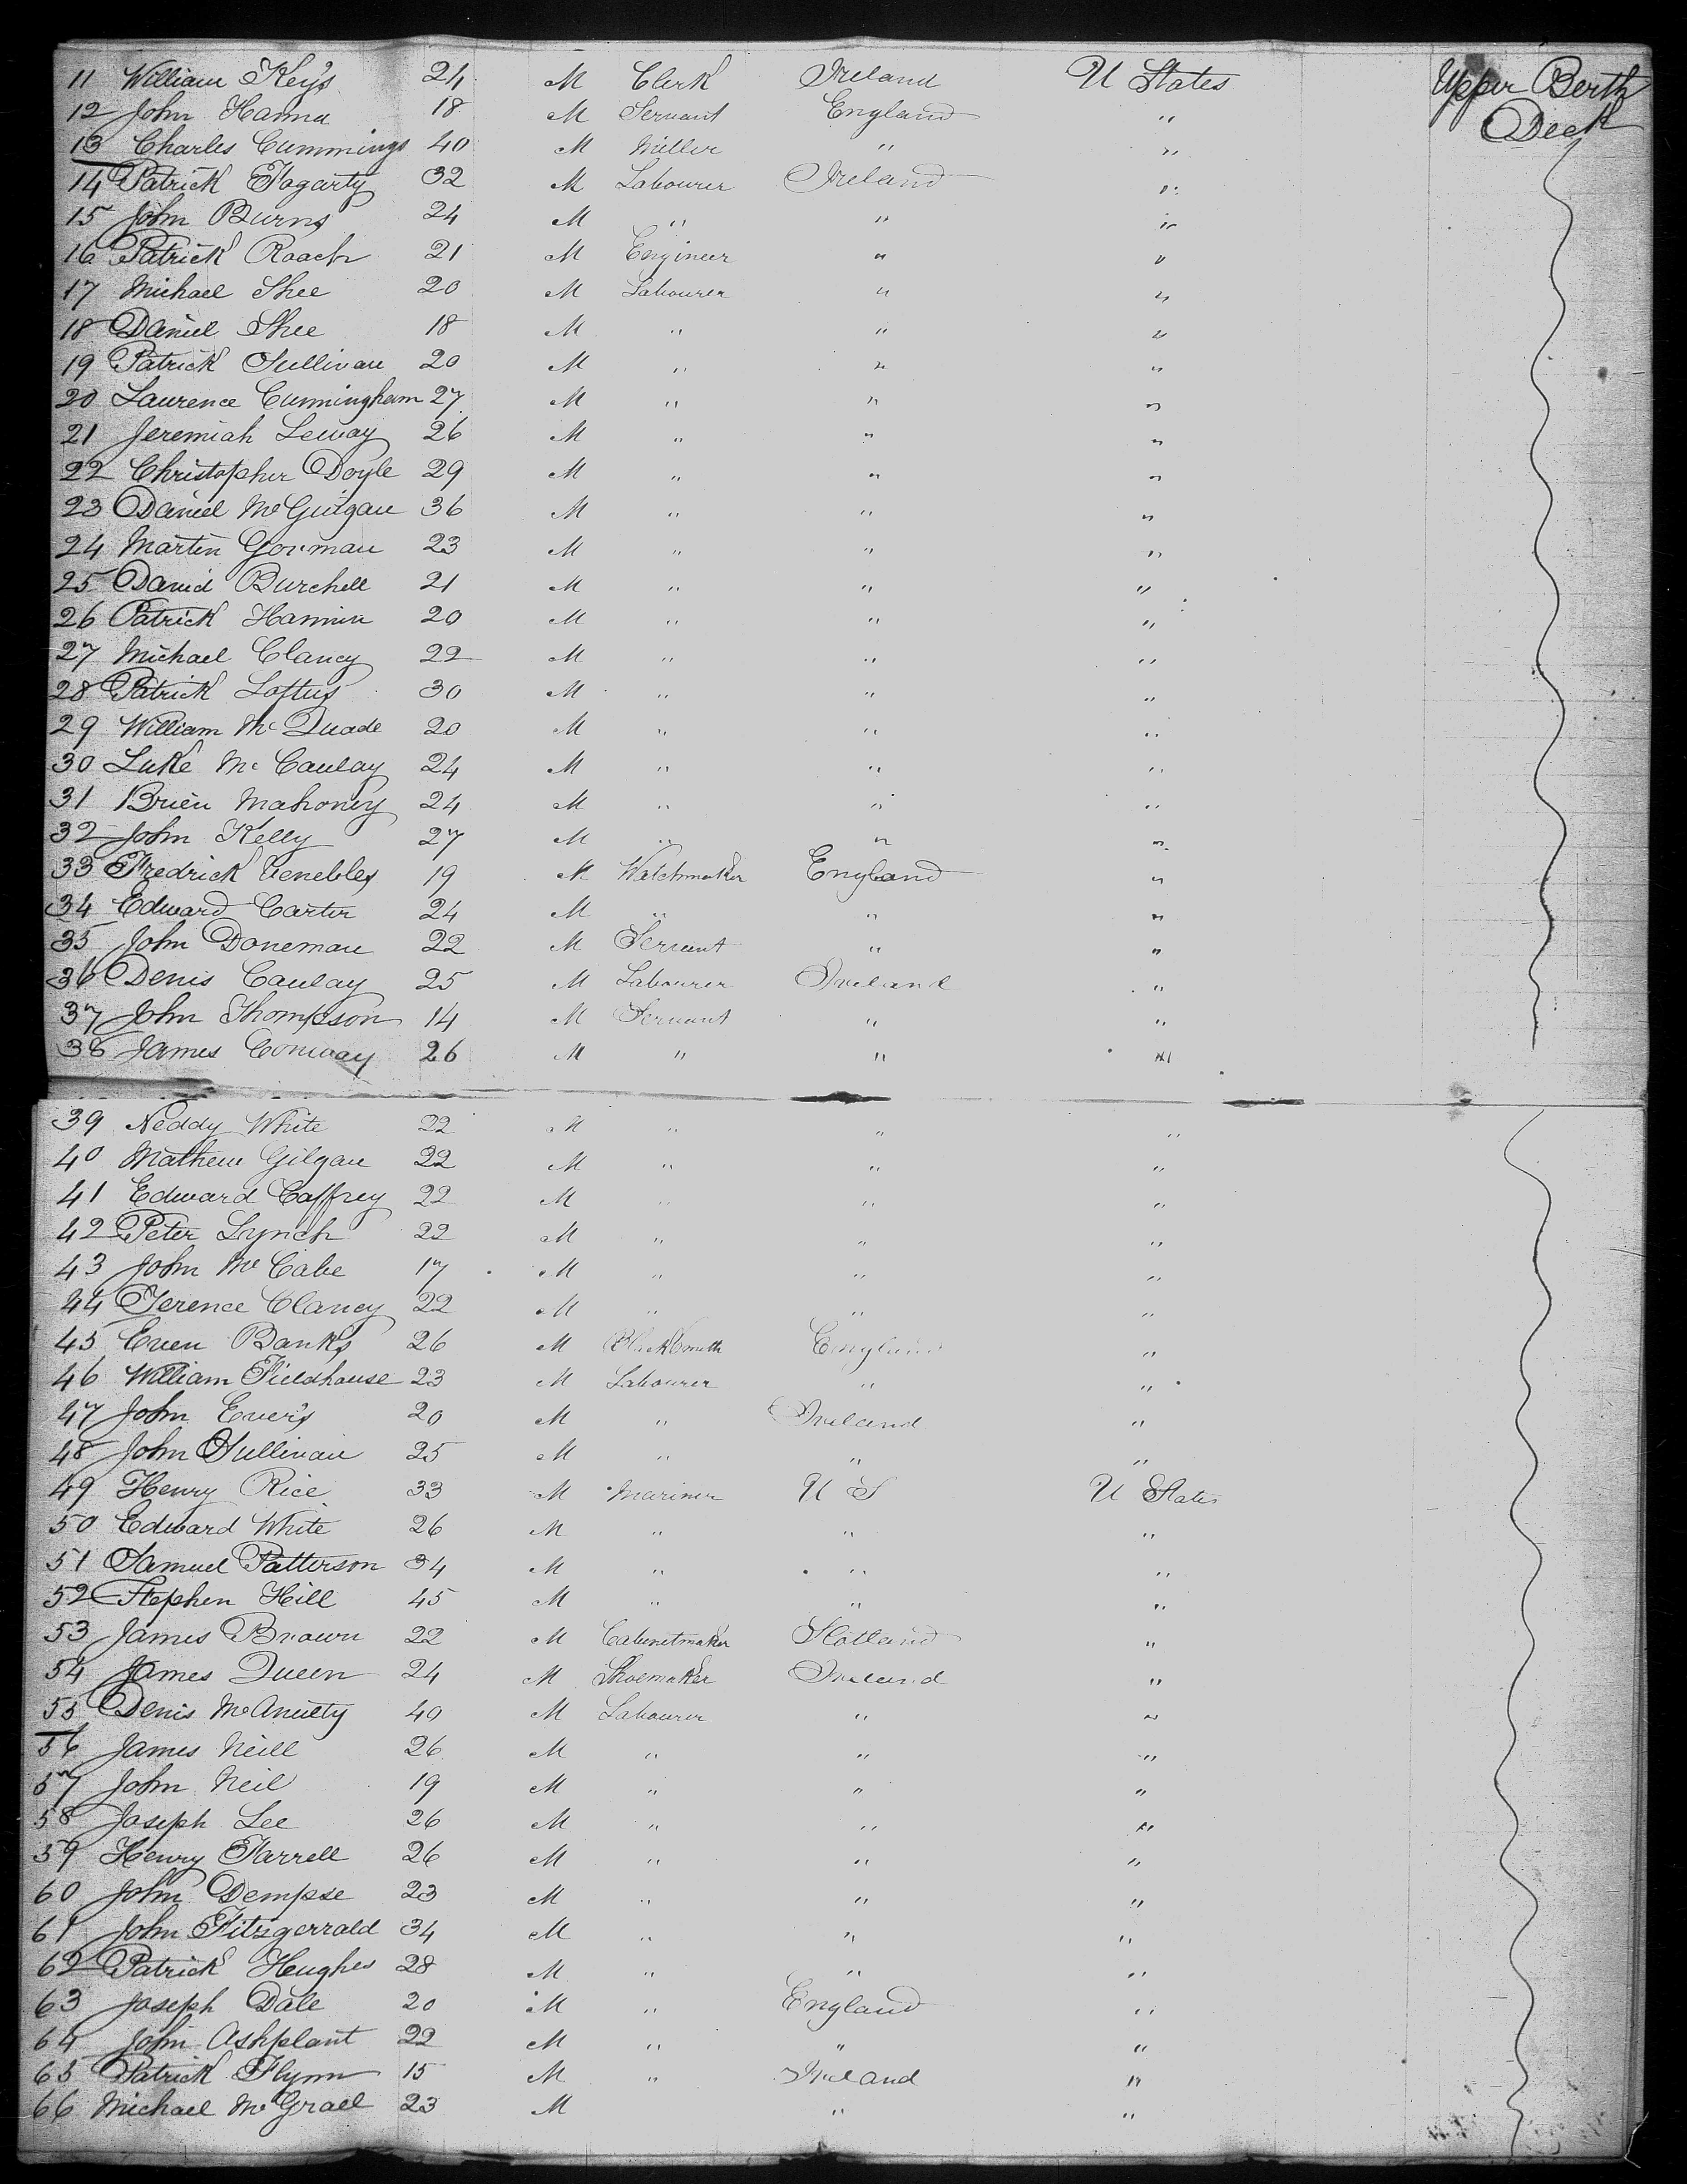 11 William Key's 24 M Clerk Ireland U States Upper Berth
12 John Hanna 18 M Servant England " Deck
13 Charles Cummings 40 M Miller " "
14 Patrick Fogarty 32 M Labourer Ireland "
15 John Burns 24 M " " "
16 Patrick Roach 21 M Engineer " "
17 Michael Shee 20 M Labourer " "
18 Daniel Shee 18 M " " "
19 Patrick OSullivan 20 M " " "
20 Laurence Cunningham 27 M " " "
21 Jeremiah Leway 26 M " " "
22 Christopher Doyle 29 M " " "
23 Daniel McGuigan 36 M " " "
24 Martin Gorman 23 M " " "
25 David Burchell 21 M " " "
26 Patrick Hannin 20 M " " "
27 Michael Clancy 22 M " " "
28 Patrick Loftus 30 M " " "
29 William Mc Quade 20 M " " "
30 Luke Mc Caulay 24 M " " "
31 Brien Mahoney 24 M " " "
32 John Kelly 27 M " " "
33 Fredrick Venebles 19 M Watchmaker England "
34 Edward Carter 24 M " " "
35 John Doneman 22 M Servant " "
36 Denis Caulay 25 M Labourer Ireland "
37 John Thompson 14 M Servant " "
38 James Conway 26 M " " "
39 Neddy White 22 M " " "
40 Mathew Gilgan 22 M " " "
41 Edward Caffrey 22 M " " "
42 Peter Lynch 22 M " " "
43 John McCabe 17 M " " "
44 Terence Clancy 22 M " " "
45 Even Banks 26 M BlackSmith England "
46 William Fieldhouse 23 M Labourer " "
47 John Ever's 20 M " Ireland "
48 John OSullivan 25 M " " "
49 Henry Rice 33 M Mariner U S U States
50 Edward White 26 M " " "
51 Samuel Patterson 34 M " " "
52 Stephen Hill 45 M " " "
53 James Brown 22 M Cabinetmaker Scotland "
54 James Queen 24 M Shoemaker Ireland "
55 Denis McAnuety 40 M Labourer " "
56 James Neill 26 M " " "
57 John Neil 19 M " " "
58 Joseph Lee 26 M " " "
59 Henry Farrell 26 M " " "
60 John Dempse 23 M " " "
61 John Fitzgerrald 34 M " " "
62 Patrick Hughes 28 M " " "
63 Joseph Dale 20 M " England "
64 John Ashplant 22 M " " "
65 Patrick Flynn 15 M " Ireland "
66 Michael McGrael 23 M " "